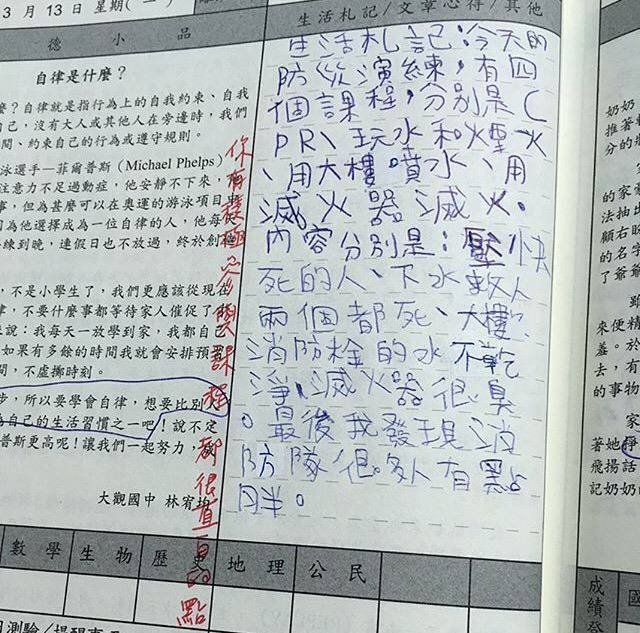 3月13日 星期(一)
生活札記/文章心得/其他
德小品
自律是什麼？
麼？自律就是指行為上的自我約束、自我
自己，沒有大人或其他人在旁邊時，我們
間、約束自己的行為或遵守規則。
泳選手—菲爾普斯(Michael Phelps)
注意力不足過動症，他安靜不下來，
事，但為甚麼可以在奧運的游泳項目
因為他選擇成為一位自律的人，他每
練到晚，連假日也不放過，終於創
，不是小學生了，我們更應該從現
律，不要什麼事都等待家人催促了
來說：我每天一放學到家，我都自
如果有多餘的時間我就會安排預
間，不虛擲時刻。
步，所以要學會自律，想要比別
為自己的生活習慣之一吧！說不定
普斯更高呢！讓我們一起努力，
大觀國中 林宥均
你有積極參與課程都很直白的點
生活札記:今天的
防災演練，有四
個課程，分別是C
PR、玩水和煙火
、用大樓噴水、用
滅火器滅火。
內容分別是：壓快
死的人、下水救人
兩個都死、大樓
消防栓的水不乾
淨、滅火器很臭
。最後我發現消
防隊很多人有點
胖。
數學 生物 歷史 地理 公民
測驗/提醒事
奶奶
推著
分的
的家
法抽出
顧右盼
的名字
來便精
羞。於
去，有
的事物
家
著她靜
飛揚話
記奶奶
成績登
國